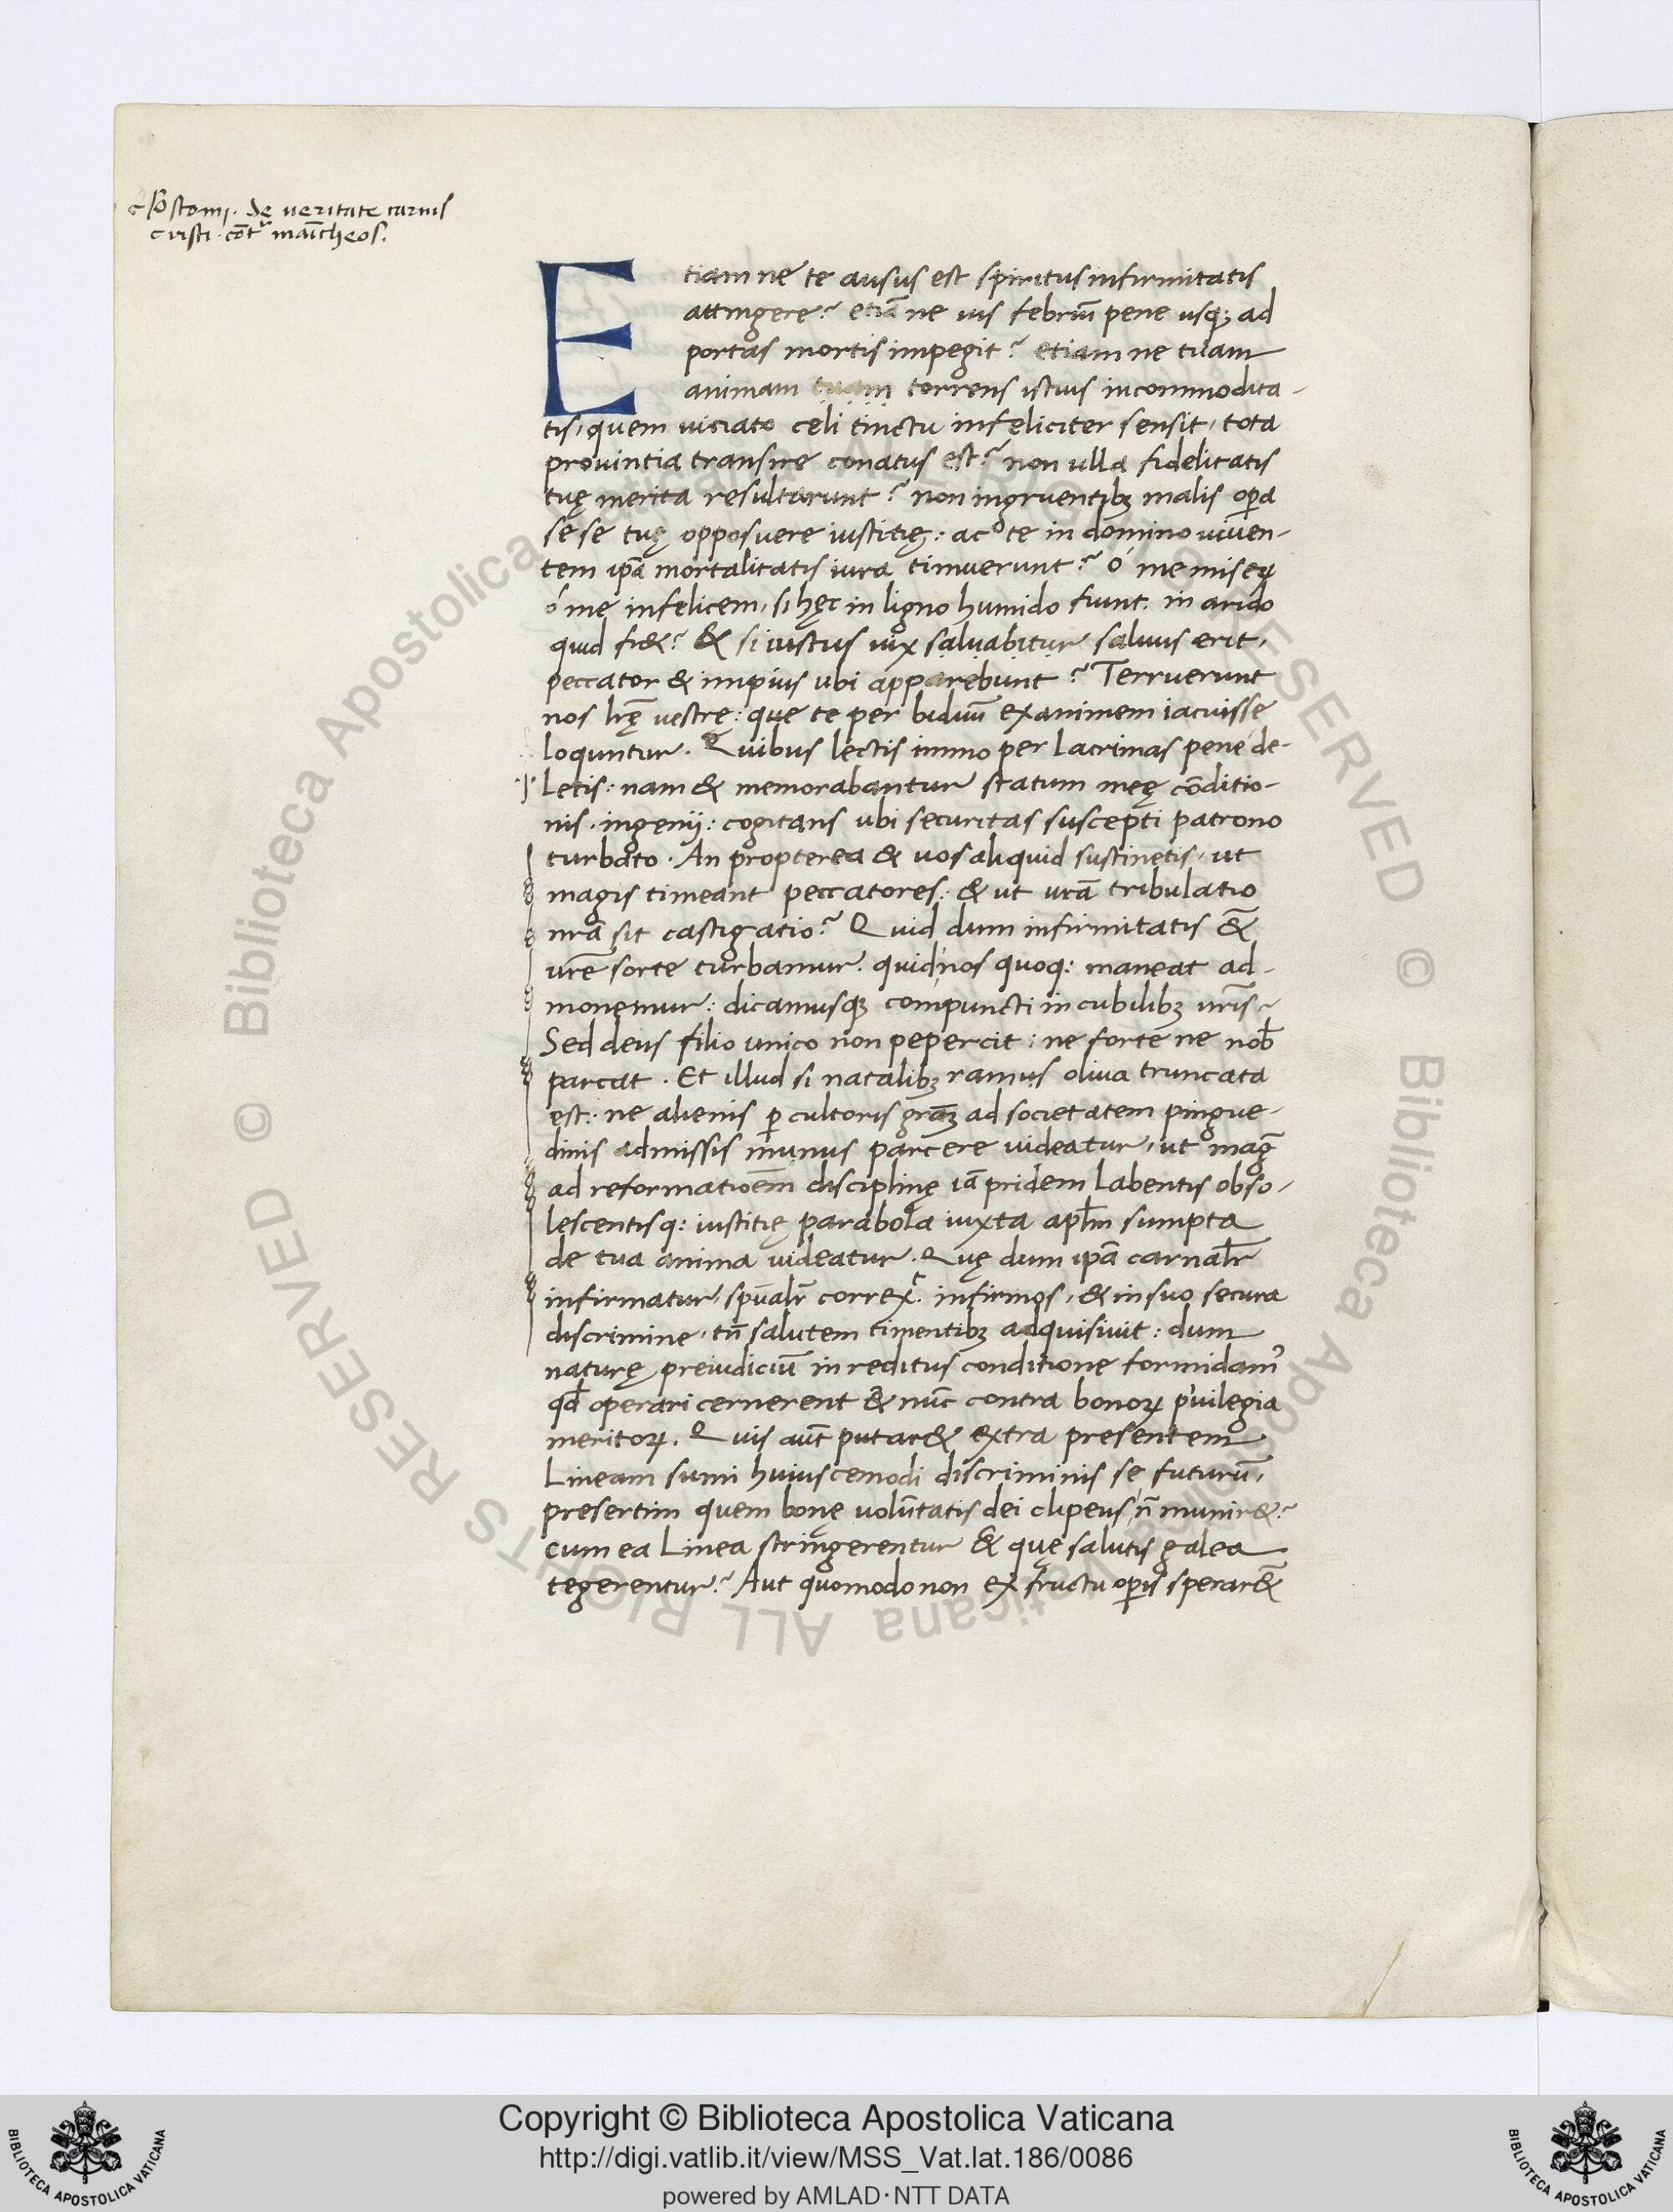 de ueritate carnis
cristi · cōt manicheos.
Etiam ne te ausus est spiritus infirmitatis
attingere? etiā ne uis febriū pene usq; ad
portas mortis impegit? etiam ne tuam
animam tuam torrens istius incommodita-
tis, quem uiciato celi tinctu infeliciter sensit, tota
prouintia transire conatus est? non ulla fidelitatis
tuę merita resultarunt? non ingruentibꝫ malis oꝑa
se se tuę opposuere iustitię: ac o te in domino uiuen-
tem ipā mortalitatis iura timuerunt? ó me miseꝝ
ó me infelicem, si hęc in ligno humido fiunt. in arido
quid fi&? & si iustus uix saluabitur saluus erit,
peccator & impius ubi apparebunt? Terruerunt
nos lr̄ę uestrę: que te per biduū exanimem iacuisse
loquntur. Quibus lectis immo per lacrimas pene de-
letis: nam & memorabantur statum meę cōditio-
nis · ingenij: cogitans ubi securitas suscepti patrono
turbato. An propterea & uos aliquid sustinetis, ut
magis timeant peccatores: & ut ur̄a tribulatio
nr̄a sit castigatio? Quid dum infirmitatis &
ur̄e sorte turbamur. quid nos quoq: maneat ad-
monemur: dicamusqꝫ compuncti in cubilibꝫ ur̄is
Sed deus filio unico non pepercit: ne forte ne nob̄
parcat. Et illud si natalibꝫ ramus oliua truncata
est: ne alienis ꝑ cultoris grām ad societatem pingue-
dinis admissis munus parcere uideatur, ut maḡ
ad reformatioēm disciplinę iā pridem labentis obso-
lescentisq: iustitię parabola iuxta apl̄m sumpta
de tua anima uideatur. Quę dum ipā carnalr̄
infirmatur, sp̄ualr̄ correx t. infirmos, & in suo secura
discrimine, tn̄ salutem timentibꝫ adquisiuit: dum
naturę preiudiciū in reditus conditione formidam̉
qd̄ operari cernerent & nūc contra bonoꝝ p'uilegia
meritoꝝ. Quis aūt putar& extra presentem
Lineam sumi huiuscemodi discriminis se futurū,
presertim quem bonę uolūtatis dei clipeus n̄ munir&?
cum ea Linea stringerentur & quę salutis galea
tegerentur? Aut quomodo non ex fructu oꝑis sperar&
Copyright © Biblioteca Apostolica Vaticana
http://digi.vatlib.it/view/MSS_Vat.lat.186/0086
powered by AMLAD·NTT DATA
BIBLIOTECA APOSTOLICA VATICANA
BIBLIOTECA APOSTOLICA VATICANA
© Biblioteca Apostolica Vaticana ALL RIGHTS RESERVED
© Biblioteca Apostolica Vaticana ALL RIGHTS RESERVED